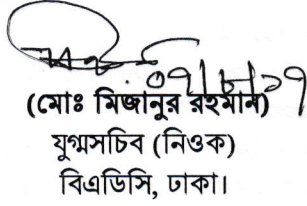 ০৭/৮/১৭
(মোঃ মিজানুর রহমান)
যুগ্মসচিব (নিওক)
বিএডিসি, ঢাকা।